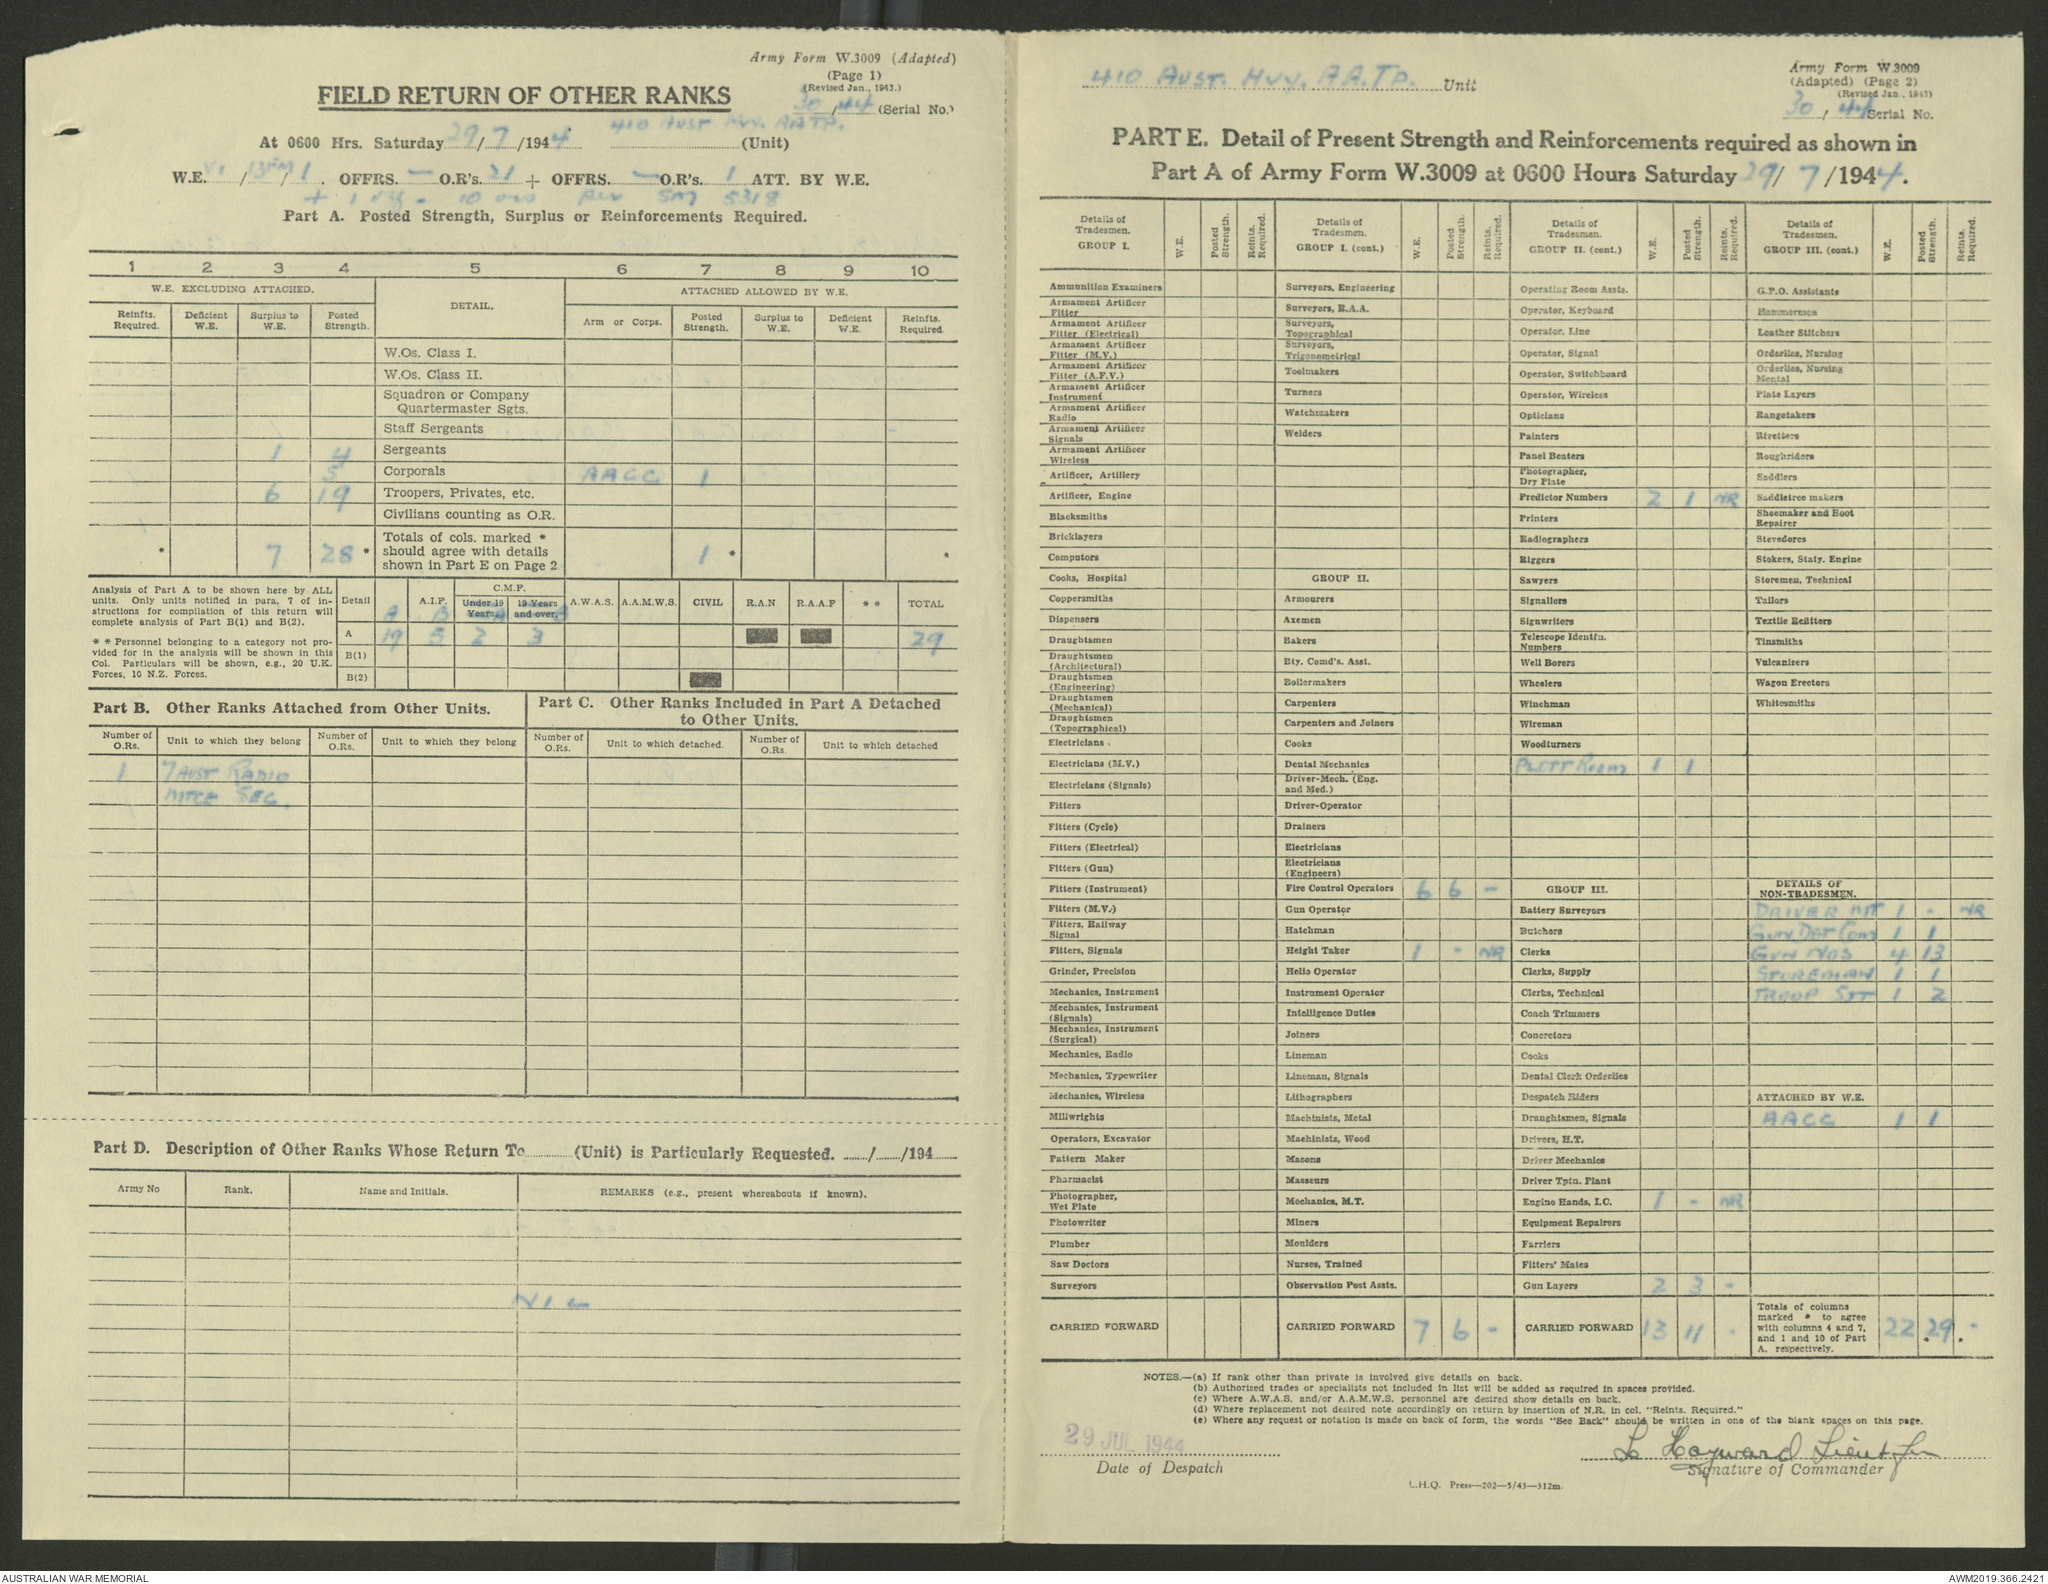 Army Form W.3009 (Adapted)
(Page 1)
(Revised Jan., 1943.)
FIELD RETURN OF OTHER RANKS
30/44 (Serial No.)
At 0600 Hrs. Saturday 29/7/1944 410 AUST HVY. AA TP. (Unit)
W.E. VI/13FM/1. OFFRS. — O.R's. 21 + OFFRS. — O.R's. 1 ATT. BY W.E.
+ 1 Off - 10 ors Per SM 5318
Part A. Posted Strength, Surplus or Reinforcements Required.
1 2 3 4 5 6 7 8 9 10
W.E. EXCLUDING ATTACHED. DETAIL. ATTACHED ALLOWED BY W.E.
Reinfts. Required. Deficient W.E. Surplus to W.E. Posted Strength. Arm or Corps. Posted Strength. Surplus to W.E. Deficient W.E. Reinfts. Required.
W.Os. Class I.
W.Os. Class II.
Squadron or Company
Quartermaster Sgts.
Staff Sergeants
1 4 Sergeants
5 Corporals AAGC 1
6 19 Troopers, Privates, etc.
Civilians counting as O.R.
* 7 28 * Totals of cols. marked * should agree with details shown in Part E on Page 2 1 * *
Analysis of Part A to be shown here by ALL
units. Only units notified in para. 7 of in-
structions for compilation of this return will
complete analysis of Part B(1) and B(2).
* * Personnel belonging to a category not pro-
vided for in the analysis will be shown in this
Col. Particulars will be shown, e.g., 20 U.K.
Forces, 10 N.Z. Forces.
Detail A.I.F. C.M.F. Under 19 Years. 19 Years and over. A.W.A.S. A.A.M.W.S. CIVIL R.A.N R.A.A.F * * TOTAL
A B A B
A 19 5 2 3 29
B(1)
B(2)
Part B. Other Ranks Attached from Other Units.
Part C. Other Ranks Included in Part A Detached
to Other Units.
Number of O.Rs. Unit to which they belong Number of O.Rs. Unit to which they belong Number of O.Rs. Unit to which detached. Number of O.Rs. Unit to which detached
1 7 AUST RADIO
MTCE SEC.
Part D. Description of Other Ranks Whose Return To (Unit) is Particularly Requested. / /194
Army No Rank. Name and Initials. REMARKS (e.g., present whereabouts if known).
NIL
410 AUST. HVY. A A. TP. Unit
Army Form W.3009
(Adapted) (Page 2)
(Revised Jan., 1943)
30/44 Serial No.
PART E. Detail of Present Strength and Reinforcements required as shown in
Part A of Army Form W.3009 at 0600 Hours Saturday 29/7/1944.
Details of Tradesmen. GROUP I. W.E. Posted Strength. Reints. Required.
Ammunition Examiners
Armament Artificer Fitter
Armament Artificer Fitter (Electrical)
Armament Artificer Fitter (M.V.)
Armament Artificer Fitter (A.F.V.)
Armament Artificer Instrument
Armament Artificer Radio
Armament Artificer Signals
Armament Artificer Wireless
Artificer, Artillery
Artificer, Engine
Blacksmiths
Bricklayers
Computors
Cooks, Hospital
Coppersmiths
Dispensers
Draughtsmen
Draughtsmen (Architectural)
Draughtsmen (Engineering)
Draughtsmen (Mechanical)
Draughtsmen (Topographical)
Electricians.
Electricians (M.V.)
Electricians (Signals)
Fitters
Fitters (Cycle)
Fitters (Electrical)
Fitters (Gun)
Fitters (Instrument)
Fitters (M.V.)
Fitters, Railway Signal
Fitters, Signals
Grinder, Precision
Mechanics, Instrument
Mechanics, Instrument (Signals)
Mechanics, Instrument (Surgical)
Mechanics, Radio
Mechanics, Typewriter
Mechanics, Wireless
Millwrights
Operators, Excavator
Pattern Maker
Pharmacist
Photographer, Wet Plate
Photowriter
Plumber
Saw Doctors
Surveyors
CARRIED FORWARD
Details of Tradesmen. GROUP I. (cont.) W.E. Posted Strength. Reints. Required.
Surveyors, Engineering
Surveyors, R.A.A.
Surveyors, Topographical
Surveyors, Trigonometrical
Toolmakers
Turners
Watchmakers
Welders
GROUP II.
Armourers
Axemen
Bakers
Bty. Comd's. Asst.
Boilermakers
Carpenters
Carpenters and Joiners
Cooks
Dental Mechanics
Driver-Mech. (Eng. and Med.)
Driver-Operator
Drainers
Electricians
Electricians (Engineers)
Fire Control Operators 6 6 -
Gun Operator
Hatchman
Height Taker 1 - NR
Helio Operator
Instrument Operator
Intelligence Duties
Joiners
Lineman
Lineman, Signals
Lithographers
Machinists, Metal
Machinists, Wood
Masons
Masseurs
Mechanics, M.T.
Miners
Moulders
Nurses, Trained
Observation Post Assts.
CARRIED FORWARD 7 6 -
Details of Tradesmen. GROUP II. (cont.) W.E. Posted Strength. Reints. Required.
Operating Room Assts.
Operator, Keyboard
Operator, Line
Operator, Signal
Operator, Switchboard
Operator, Wireless
Opticians
Painters
Panel Beaters
Photographer, Dry Plate
Predictor Numbers 2 1 NR
Printers
Radiographers
Riggers
Sawyers
Signallers
Signwriters
Telescope Identfn. Numbers
Well Borers
Wheelers
Winchman
Wireman
Woodturners
PLOTT ROOM 1 1
GROUP III.
Battery Surveyors
Butchers
Clerks
Clerks, Supply
Clerks, Technical
Coach Trimmers
Concretors
Cooks
Dental Clerk Orderlies
Despatch Riders
Draughtsmen, Signals
Drivers, H.T.
Driver Mechanics
Driver Tptn. Plant
Engine Hands, I.C. 1 - NR
Equipment Repairers
Farriers
Fitters' Mates
Gun Layers 2 3 -
CARRIED FORWARD 13 11 -
Details of Tradesmen. GROUP III. (cont.) W.E. Posted Strength. Reints. Required.
G.P.O. Assistants
Hammermen
Leather Stitchers
Orderlies, Nursing
Orderlies, Nursing Mental
Plate Layers
Rangetakers
Rivetters
Roughriders
Saddlers
Saddletree makers
Shoemaker and Boot Repairer
Stevedores
Stokers, Staty. Engine
Storemen, Technical
Tailors
Textile Refitters
Tinsmiths
Vulcanizers
Wagon Erectors
Whitesmiths
DETAILS OF NON-TRADESMEN.
DRIVER MT 1 - NR
GUN DET COM 1 1
GUN NOS 4 13
STOREMAN 1 1
TROOP SJT 1 2
ATTACHED BY W.E.
AAGC 1 1
Totals of columns marked * to agree with columns 4 and 7, and 1 and 10 of Part A. respectively. 22 29 -
NOTES.—(a) If rank other than private is involved give details on back.
(b) Authorised trades or specialists not included in list will be added as required in spaces provided.
(c) Where A.W.A.S. and/or A.A.M.W.S. personnel are desired show details on back.
(d) Where replacement not desired note accordingly on return by insertion of N.R. in col. "Reints. Required."
(e) Where any request or notation is made on back of form, the words "See Back" should be written in one of the blank spaces on this page.
29 JUL 1944
Date of Despatch
L Hayward Lieut
Signature of Commander
L.H.Q. Press—202—5/43—312m.
AUSTRALIAN WAR MEMORIAL
AWM2019.366.2421